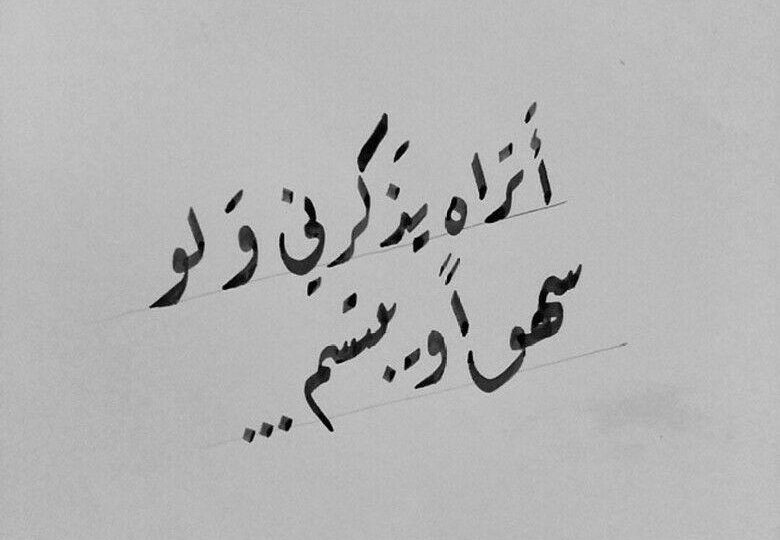 أَتَراه يَذكرني وَلو
سهواً ويبتسم ...